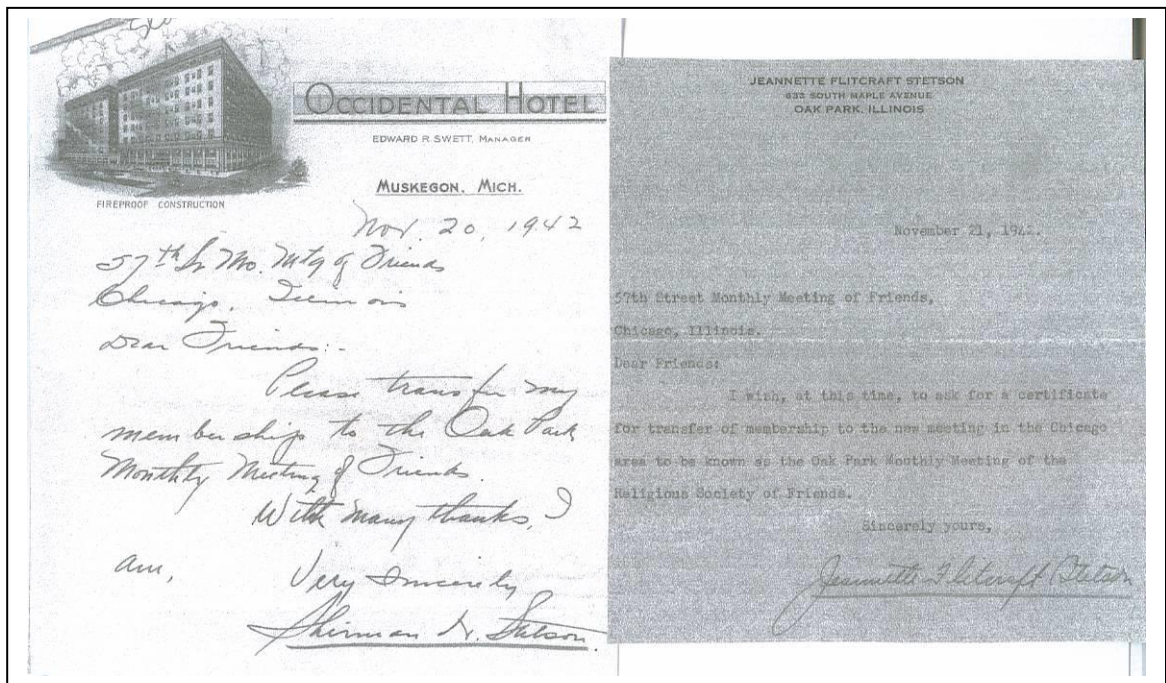 OCCIDENTAL HOTEL
EDWARD R. SWETT, MANAGER
MUSKEGON, MICH.
FIREPROOF CONSTRUCTION
Nov. 20, 1942
57th St Mo. Mtg of Friends
Chicago, Illinois
Dear Friends:-
Please transfer my
membership to the Oak Park
Monthly Meeting of Friends.
With many thanks, I
am,
Very Sincerely
Sherman W. Stetson.
JEANNETTE FLITCRAFT STETSON
633 SOUTH MAPLE AVENUE
OAK PARK, ILLINOIS
November 21, 1942.
57th Street Monthly Meeting of Friends,
Chicago, Illinois.
Dear Friends:
I wish, at this time, to ask for a certificate
for transfer of membership to the new meeting in the Chicago
area to be known as the Oak Park Monthly Meeting of the
Religious Society of Friends.
Sincerely yours,
Jeannette Flitcraft Stetson